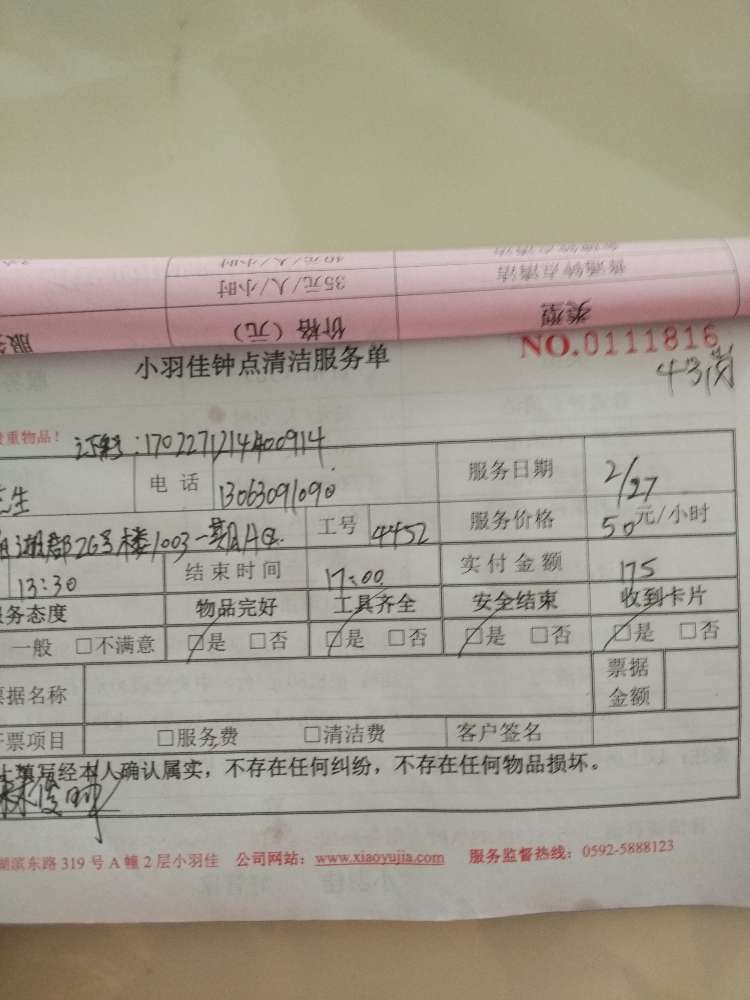 普通钟点清洁
35元/人/小时
类型
价格（元）
小羽佳钟点清洁服务单
NO.0111816
贵重物品！
订单号:170227121400914
电话
13063091090
服务日期
2/27
26号楼1003一期A区
工号
4452
服务价格
50元/小时
13:30
结束时间
17:00
实付金额
175
服务态度
物品完好
工具齐全
安全结束
收到卡片
一般 □不满意
□是 □否
□是 □否
□是 □否
□是 □否
票据名称
票据
金额
开票项目
□服务费
□清洁费
客户签名
上填写经本人确认属实，不存在任何纠纷，不存在任何物品损坏。
湖滨东路319号A幢2层小羽佳 公司网站：www.xiaoyujia.com 服务监督热线：0592-5888123